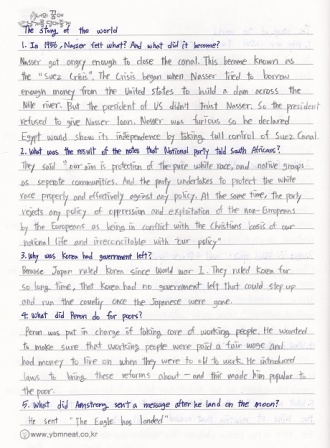 The story of the world
1. In 1956, Nasser felt what? And what did it become?
Nasser got angry enough to close the canal. This became known as
the "Suez Crisis". The Crisis began when Nasser tried to borrow
enough money from the United States to build a dam across the
Nile river. But the president of US didn't trust Nasser. So the president
refused to give Nasser loan. Nasser was furious so he declared
Egypt would show its independence by taking full control of Suez Canal.
2. What was the result of the notes that National party told South Africans?
They said "our aim is protection of the pure white race, and native groups
as seperate communities. And the party undertakes to protect the white
race properly and effectively against any policy. At the same time, the party
rejects any policy of oppression and exploitation of the non-Europeans
by the Europeans as being in conflict with the Christians basis of our
national life and irreconcilable with our policy"
3. Why was Korea had government left?
Because Japan ruled Korea since World War I. They ruled Korea for
so long time, that Korea had no government left that could step up
and run the country once the Japanese were gone.
4. What did Peron do for poors?
Peron was put in charge if taking care of working people. He wanted
to make sure that working people were paid a fair wage and
had money to live on when they were to old to work. He introduced
laws to bring these reforms about - and this made him popular to
the poor.
5. What did Amstrong sent a message after he land on the moon?
He sent "The Eagle has landed"
www.ybmneat.co.kr